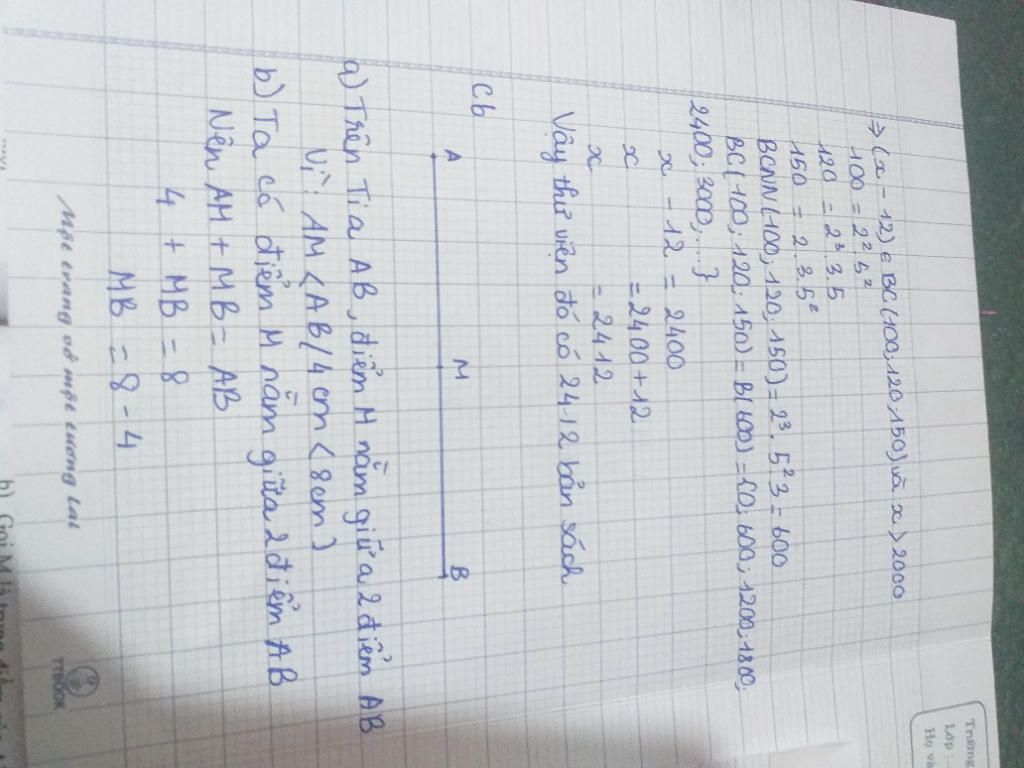 Trường
Lớp
Họ và
⇒ (x - 12) ∈ BC(100,120,150) và x > 2000
100 = 2² 5²
120 = 2³. 3. 5
150 = 2. 3. 5²
BCNN(100, 120; 150) = 2³. 5² 3 = 600
BC(100; 120; 150) = B(600) = {0; 600; 1200; 1800;
2400; 3000; ...}
x - 12 = 2400
x = 2400 + 12
x = 2412
Vậy thư viện đó có 2412 bản sách
C6
A M B
a) Trên Tia AB, điểm M nằm giữa 2 điểm AB
Vì: AM < AB (4cm < 8cm)
b) Ta có điểm M nằm giữa 2 điểm AB
Nên AM + MB = AB
4 + MB = 8
MB = 8 - 4
Một trang vở một tương lai
TTBOOK
b) Gọi M là trung điểm